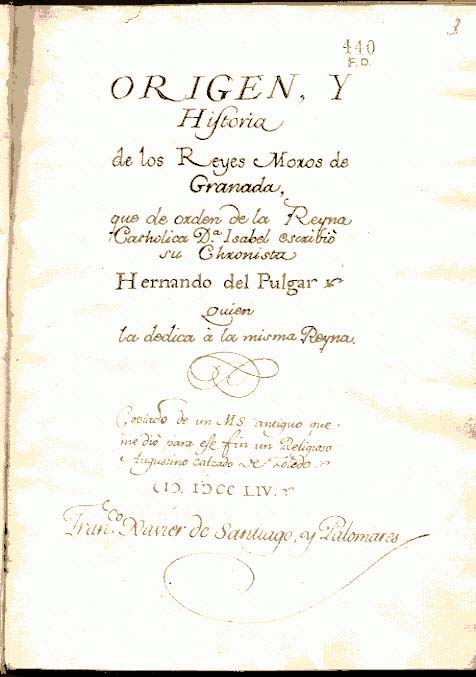 3
440
F.D.
ORIGEN, Y
Historia
de los Reyes Moros de
Granada,
que de orden de la Reyna
Catholica D.ª Isabel escribiò
su Chronista
Hernando del Pulgar
Quien
la dedica à la misma Reyna.
Copiado de un MS. antiguo que
me diò para este fin un Religioso
Augustino calzado de Toledo
CIƆ. IƆCC LIV.
Fran.ᶜᵒ Xavier de Santiago, y Palomares